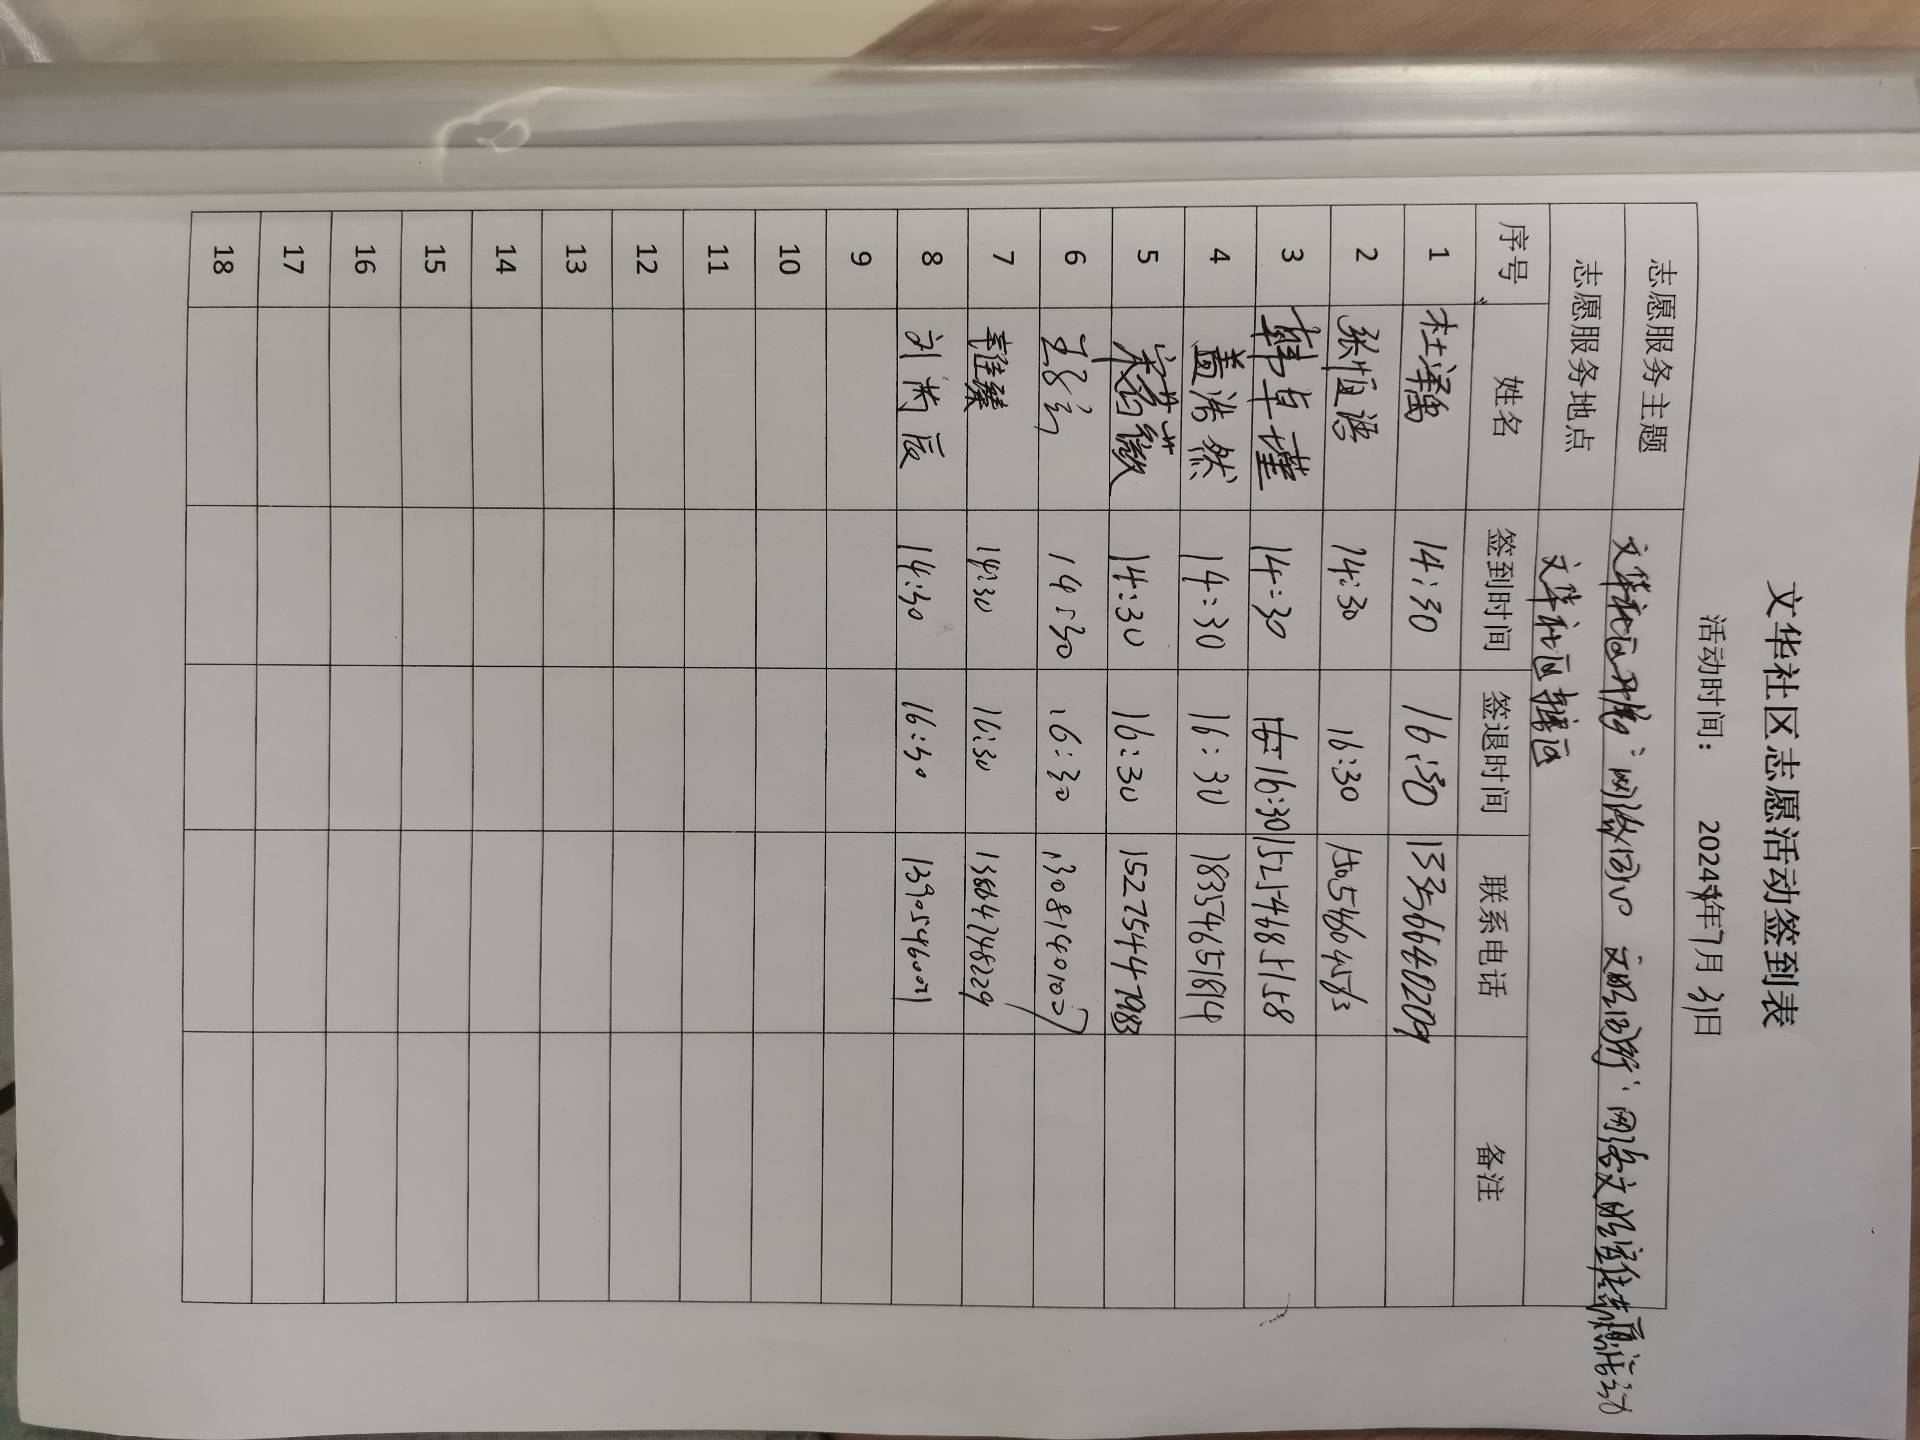 文华社区志愿活动签到表
活动时间： 2024年7月31日
志愿服务主题 文华社区开展"网汇向心 文明同行"网络文明宣传志愿活动
志愿服务地点 文华社区辖区
序号 姓名 签到时间 签退时间 联系电话 备注
1 杜泽禹 14:30 16:30 13356640209
2 张恒语 14:30 16:30
3 韩卓瑾 14:30 16:30 15254685158
4 盖浩然 14:30 16:30 18354651814
5 宋若薇 14:30 16:30 15275447983
6 14:30 16:30 13081401007
7 14:30 16:30 13864748229
8 刘芮辰 14:30 16:30 13905460021
9
10
11
12
13
14
15
16
17
18